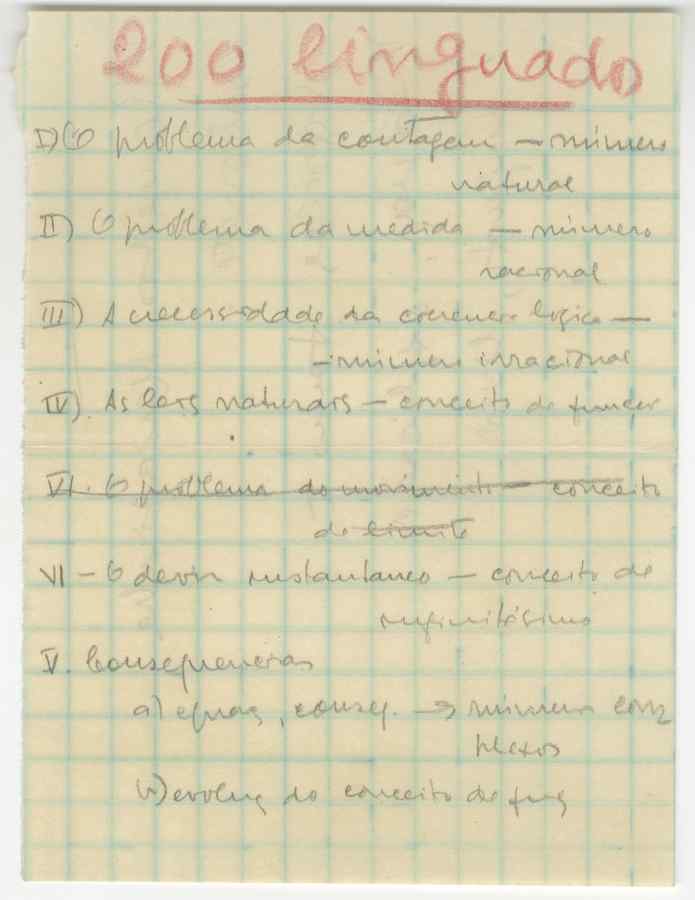 200 linguado
I) O problema da contagem – número
natural
II) O problema da medida – número
racional
III) A necessidade da logica –
– número irracional
IV) As leis naturais – conceito de
VI. O problema do movimento – conceito
de limite
VI – O devir instantaneo – conceito de
infinitésimo
V. Consequencias
a) conseq. → número com
plexos
b) evoluç do conceito de funç